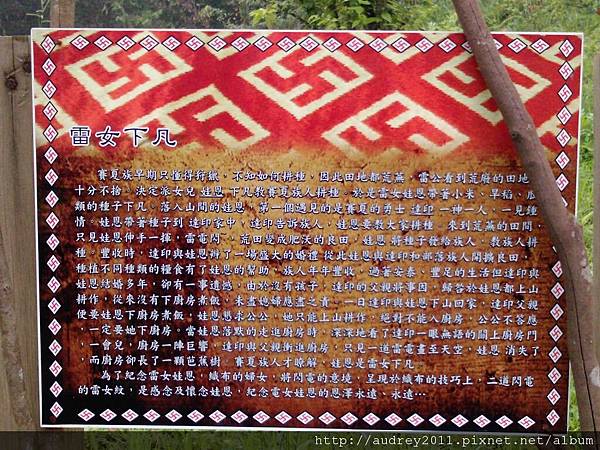 雷女下凡
賽夏族早期只懂得狩獵、不知如何耕種，因此田地都荒蕪。雷公看到荒廢的田地
十分不捨。決定派女兒 娃恩 下凡教賽夏族人耕種。於是雷女娃恩帶著小米、旱稻、瓜
類的種子下凡。落入山間的娃恩，第一個遇見的是賽夏的勇士 達印 一神一人、一見鍾
情。娃恩帶著種子到 達印家中，達印告訴族人，娃恩要教大家耕種，來到荒蕪的田間
只見娃恩伸手一揮，雷電閃 ，荒田變成肥沃的良田，娃恩 將種子發給族人，教族人耕
種。豐收時，達印與娃恩辦了一場盛大的婚禮 從此娃恩與達印和部落族人開擴良田
種植不同種類的糧食有了娃恩的幫助，族人年年豐收，過著安泰、豐足的生活但達印與
娃恩結婚多年，卻有一事遺憾，由於沒有孩子，達印的父親將事因，歸咎於娃恩都上山
耕作，從來沒有下廚房煮飯，未盡媳婦應盡之責，一日達印與娃恩下山回家，達印父親
便要娃恩下廚房煮飯，娃恩懇求公公，她只能上山耕作，絕對不能入廚房，公公不答應
，一定要她下廚房。當娃恩落寞的走進廚房時，深深地看了達印一眼無語的關上廚房門
，一會兒，廚房一陣巨響，達印與父親衝進廚房，只見一道雷電直至天空，娃恩 消失了
，而廚房卻長了一顆芭蕉樹，賽夏族人才瞭解，娃恩是雷女下凡
為了紀念雷女娃恩，織布的婦女，將閃電的意境，呈現於織布的技巧上，二道閃電
的雷女紋，是感念及懷念娃恩，紀念電女娃恩的恩澤永遠、永遠…
http://audrey2011.pixnet.net/album